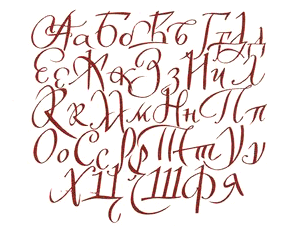 Аа Бб Вв Гг Дд
Ее Жж Зз Ии Л
К к М м Н н П п
Оо Сс Рр Тт Уу
Х Ц Ш Ф Я